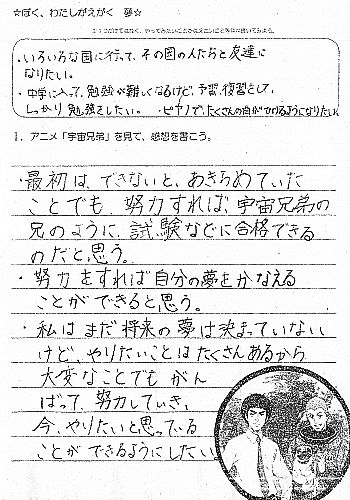 ☆ぼく、わたしがえがく 夢☆
・いろいろな国に行って、その国の人たちと友達に
なりたい。
・中学に入って、勉強が難しくなるけど、予習、復習をして、
しっかり勉強をしたい。・ピアノで、たくさんの曲がひけるようになりたい。
1. アニメ「宇宙兄弟」を見て、感想を書こう。
・最初は、できないと、あきらめていた
ことでも、努力すれば、宇宙兄弟の
兄のように、試験などに合格できる
のだと思う。
・努力をすれば自分の夢をかなえる
ことができると思う。
・私はまだ将来の夢は決まっていない
けど、やりたいことはたくさんあるから
大変なことでもがん
ばって、努力していき、
今、やりたいと思っている
ことができるようにしたい。